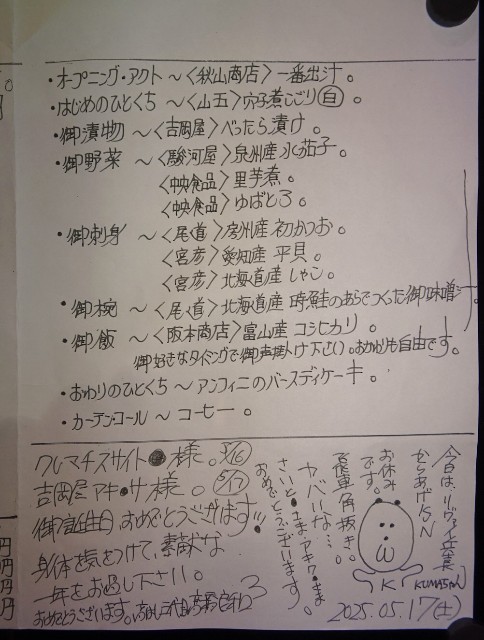 ・オープニング・アクト 〜〈秋山商店〉一番出汁。
・はじめのひとくち〜〈山五〉穴子煮こごり(白)。
・御漬物 〜〈吉岡屋〉べったら漬け。
・御野菜 〜〈駿河屋〉泉州産 水茄子。
〈中央食品〉里芋煮。
〈中央食品〉ゆばとろ。
・御刺身 〜〈尾道〉房州産 初かつお。
〈宮彦〉愛知産 平貝。
〈宮彦〉北海道産 しゃこ。
・御椀 〜〈尾道〉北海道産 時鮭のあらでつくった御味噌汁。
・御飯 〜〈阪本商店〉富山産 コシヒカリ。
御好きなタイミングで御声掛け下さい。おかわりも自由です。
・おわりのひとくち〜アンフィニのバースディケーキ。
・カーテン・コール〜コーヒー。
クレマチスサイト 様。5/16
吉岡屋 アキ・サ様。5/17
御誕生日、おめでとうございます!!
身体を気をつけて、素敵な
一年をお過し下さい。
おめでとうございます。
今日は、
からあげKUN
お休み
です。
ヤバいな…。
おめでとうございます。
KUMASAN
2025.05.17(土)